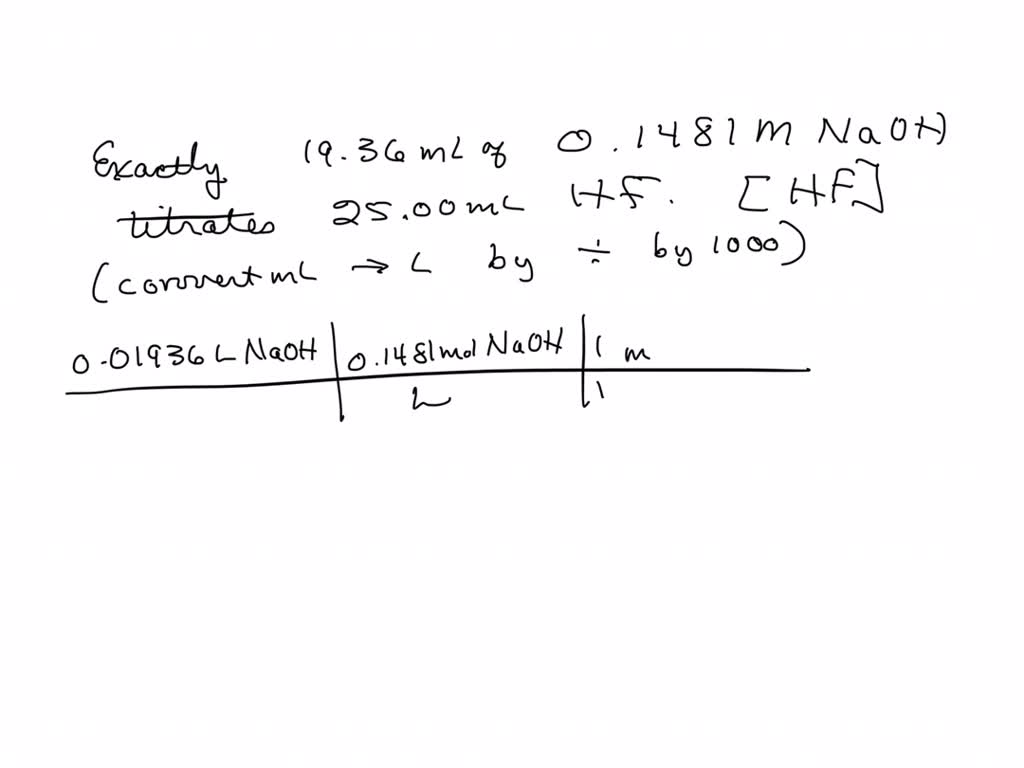 Exactly 19.36 mL of 0.1481 M NaOH
titrates 25.00 mL HF. [HF]
(convert mL → L by ÷ by 1000)
0.01936 L NaOH | 0.1481 mol NaOH | 1 m
L | 1